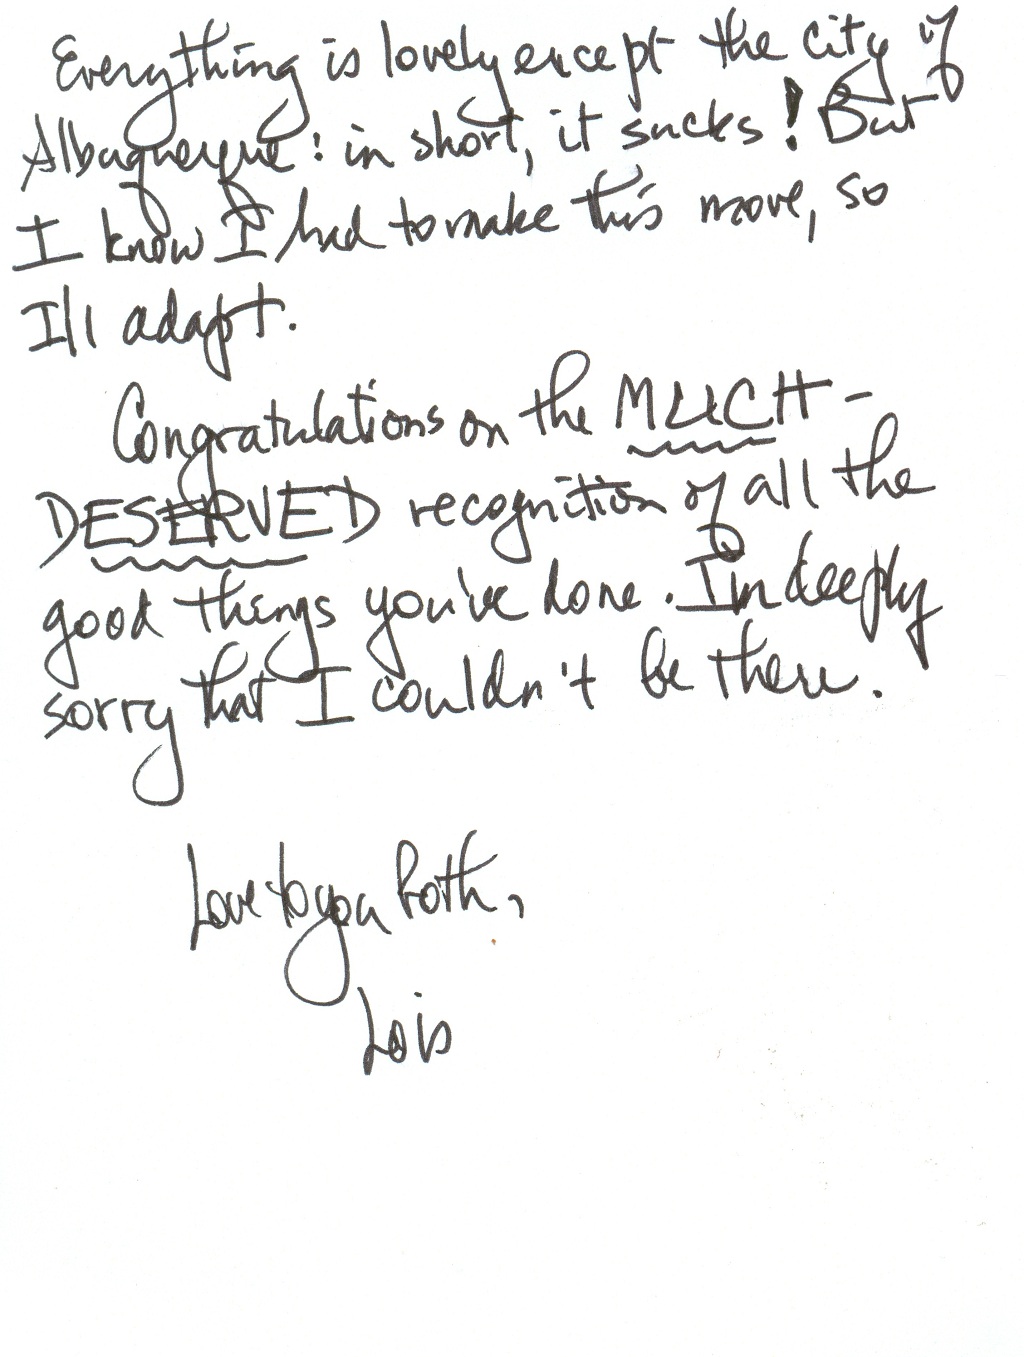 Everything is lovely except the city of
Albuquerque: in short, it sucks! But
I know I had to make this move, so
I'll adapt.
Congratulations on the MUCH-
DESERVED recognition of all the
good things you've done. I'm deeply
sorry that I couldn't be there.
Love to you both,
Lois